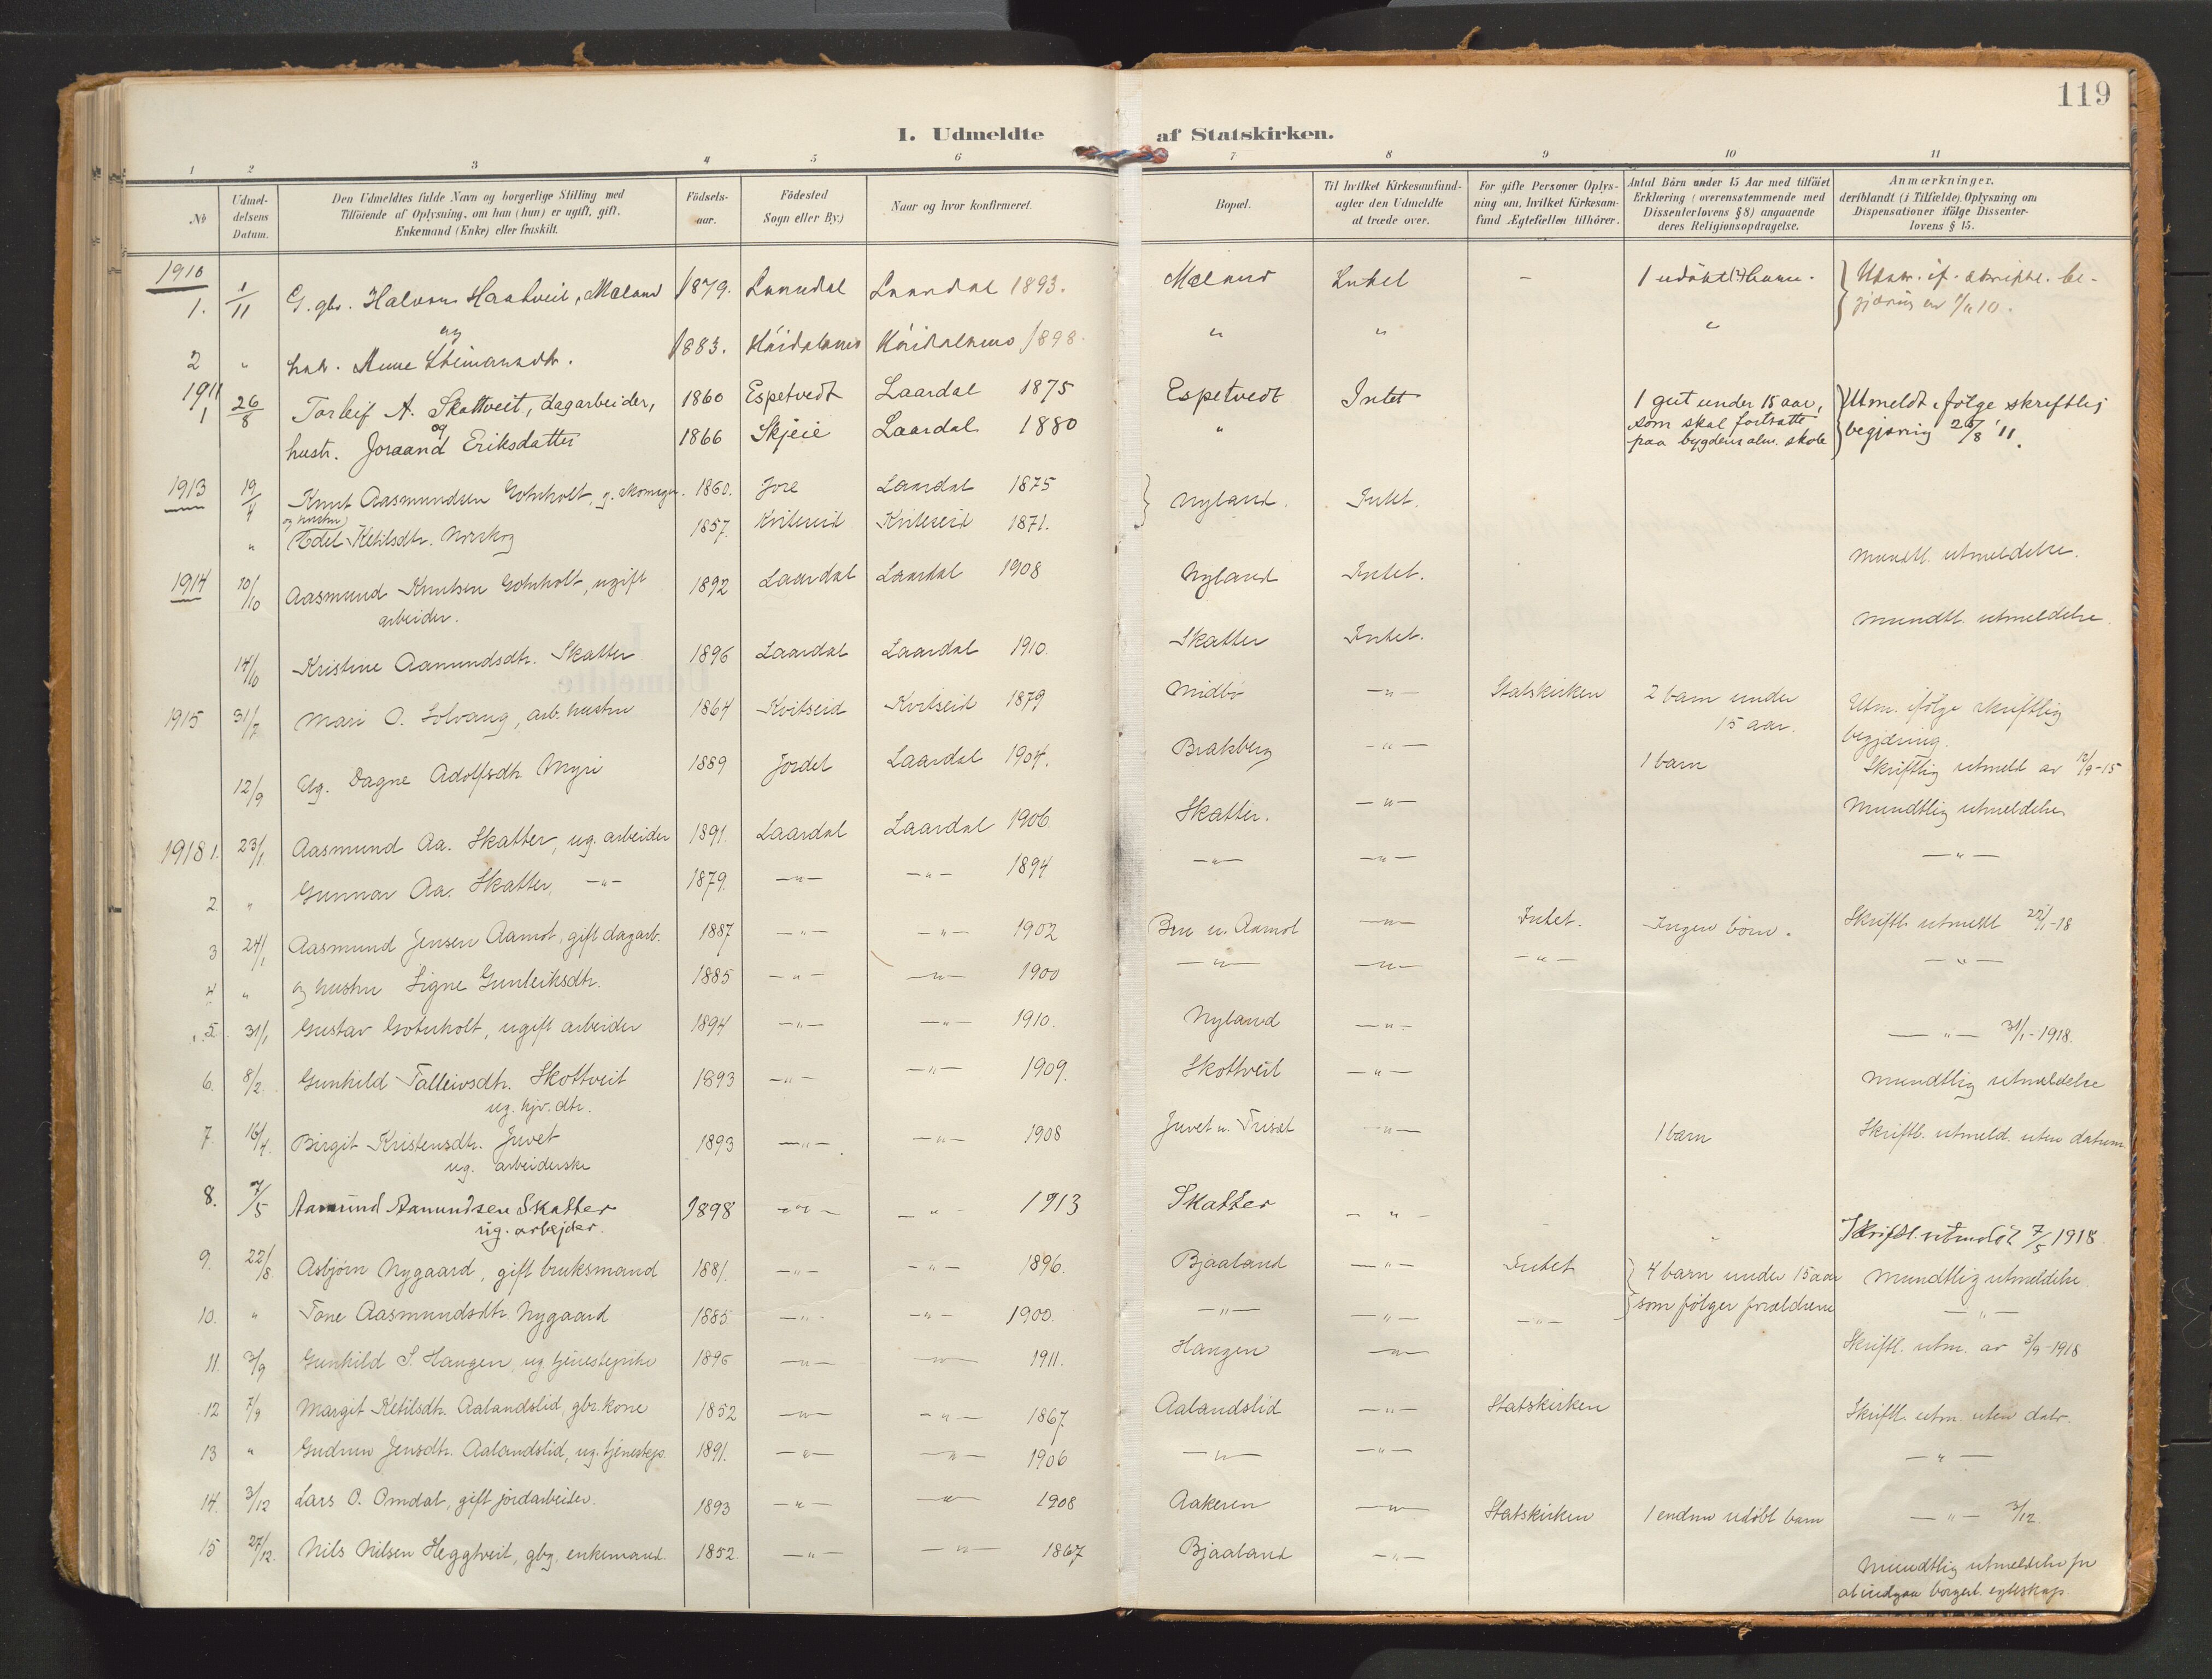 119
I. Udmeldte af Statskirken.
1 2 3 4 5 6 7 8 9 10 11
No
Udmel-
delsens
Datum.
Den Udmeldtes fulde Navn og borgerlige Stilling med
Tilföiende af Oplysning, om han (hun) er ugift, gift,
Enkemand (Enke) eller fraskilt.
Födsels-
aar.
Födested
Sogn eller By.)
Naar og hvor konfirmeret.
Bopæl.
Til hvilket Kirkesamfund-
agter den Udmeldte
at træde over.
For gifte Personer Oplys-
ning om, hvilket Kirkesam-
fund Ægtefællen tilhörer.
Antal Börn under 15 Aar med tilföiet
Erklæring (overensstemmende med
Dissenterlovens §8) angaaende
deres Religionsopdragelse.
Anmærkninger,
deriblandt (i Tilfælde) Oplysning om
Dispensationer ifölge Dissenter-
lovens § 15.
1910
1. 1/11 G. gbr. Halvor Haatveit, Mæland 1879. Laardal Laardal 1893. Mæland Intet — 1 udöbt barn. Udtr. if. skriftl. be-
gjæring av 1/11 10.
og
2 " hustr. Anne Steinarsdtr. 1883. Höidalsmo Höidalsmo 1898. " " "
1911
1 26/8 Torleif A. Skottveit, dagarbeider, 1860 Espetvedt Laardal 1875 Espetvedt Intet 1 gut under 15 aar, Utmeldt ifölge skriftlig
og
hustr. Joraand Eriksdatter 1866 Skjeie Laardal 1880 " som skal fortsætte begjæring 26/8 '11.
paa bygdens alm. skole
1913 19/4 Knut Aasmundsen Gotuholt, g. skomager. 1860. Jore Laardal 1875 Nyland. Intet.
og hustru
" Edel Ketilsdtr. Norskog 1857. Kviteseid Kviteseid 1871.
Mundtl. utmeldelse.
1914 10/10 Aasmund Knutsen Gotuholt, ugift 1892 Laardal Laardal 1908 Nyland Intet.
arbeider.
Mundtl. utmeldelse.
14/10 Kristine Aamundsdtr. Skatter 1896 Laardal Laardal 1910. Skatter Intet.
1915 31/7 Mari O. Solvang, arb. hustru 1864 Kvitseid Kvitseid 1879 Midbö —"— Statskirken 2 barn under Utm. ifölge skriftlig
15 aar. begjæring.
12/9 Ug. Dagne Adolfsdtr. Myri 1889 Jordet Laardal 1904. Brakberg —"— 1 barn Skriftlig utmeld av 12/9-15
1918 1. 23/1 Aasmund Aa. Skatter, ug. arbeider 1891. Laardal Laardal 1906. Skatter. —"— Mundtlig utmeldelse
2. " Gunnar Aa. Skatter, —"— 1879. —"— —"— 1894 —"— —"— —"—
3 24/1 Aasmund Jensen Aamot, gift dagarb. 1887 —"— —"— 1902 Bru u. Aamot —"— Intet. Ingen börn. Skriftl. utmeldt 22/1-18
4 " og hustru Signe Gunleiksdtr. 1885 —"— —"— 1900 —"— —"— —"— —"—
5 31/1 Gustav Gotuholt, ugift arbeider 1894 —"— —"— 1910. Nyland —"— —"— 31/1-1918.
6. 8/2 Gunhild Talleivsdtr. Skottveit 1893 —"— —"— 1909. Skottveit —"— Mundtlig utmeldelse
ug. hjv. dtr.
7. 16/4. Birgit Kristensdtr. Juvet 1893 —"— —"— 1908 Juvet u. Trisæt —"— 1 barn Skriftl. utmeld. uten datum
ug. arbeiderske
8. 7/5 Aamund Aamundsen Skatter 1898 —"— —"— 1913 Skatter —"— Skriftl. utmeldt 7/5 1918.
ug. arbejder.
9. 22/8. Asbjörn Nygaard, gift bruksmand 1881. —"— —"— 1896. Bjaaland —"— Intet 4 barn under 15 aar Mundtlig utmeldelse.
10. " Tone Aasmundsdtr. Nygaard 1885 —"— —"— 1900. —"— —"— —"— som fölger forældrene —"—
11. 3/9 Gunhild S. Haugen, ug. tjenestepike 1896 —"— —"— 1911. Haugen —"— Skriftl. utm. av 3/9-1918
12 7/9 Margit Ketilsdtr. Aalandslid, gbr. kone 1852 —"— —"— 1867 Aalandslid —"— Statskirken Skriftl. utm. uten dato.
13 " Gudrun Jensdtr. Aalandslid, ug. tjenestep. 1891. —"— —"— 1906 —"— —"— —"—
14. 3/12 Lars O. Omdal, gift jordarbeider. 1893 —"— —"— 1908 Aakeren —"— Statskirken 1 endnu udöbt barn —"— 3/12.
15 27/12. Nils Nilsen Heggtveit, gbg. enkemand. 1852. —"— —"— 1867 Bjaaland —"— Mundtlig utmeldelse for
at indgaa borgerl. egteskap.